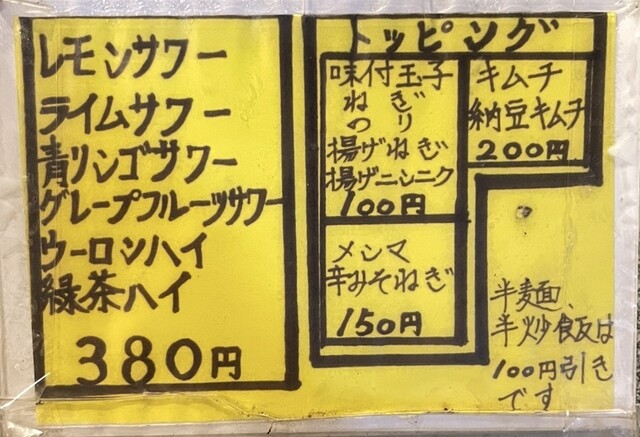 レモンサワー
ライムサワー
青リンゴサワー
グレープフルーツサワー
ウーロンハイ
緑茶ハイ
380円
トッピング
味付玉子
ねぎ
のり
揚げねぎ
揚げニンニク
100円
メンマ
辛みそねぎ
150円
キムチ
納豆キムチ
200円
半麺、
半炒飯は
100円引き
です